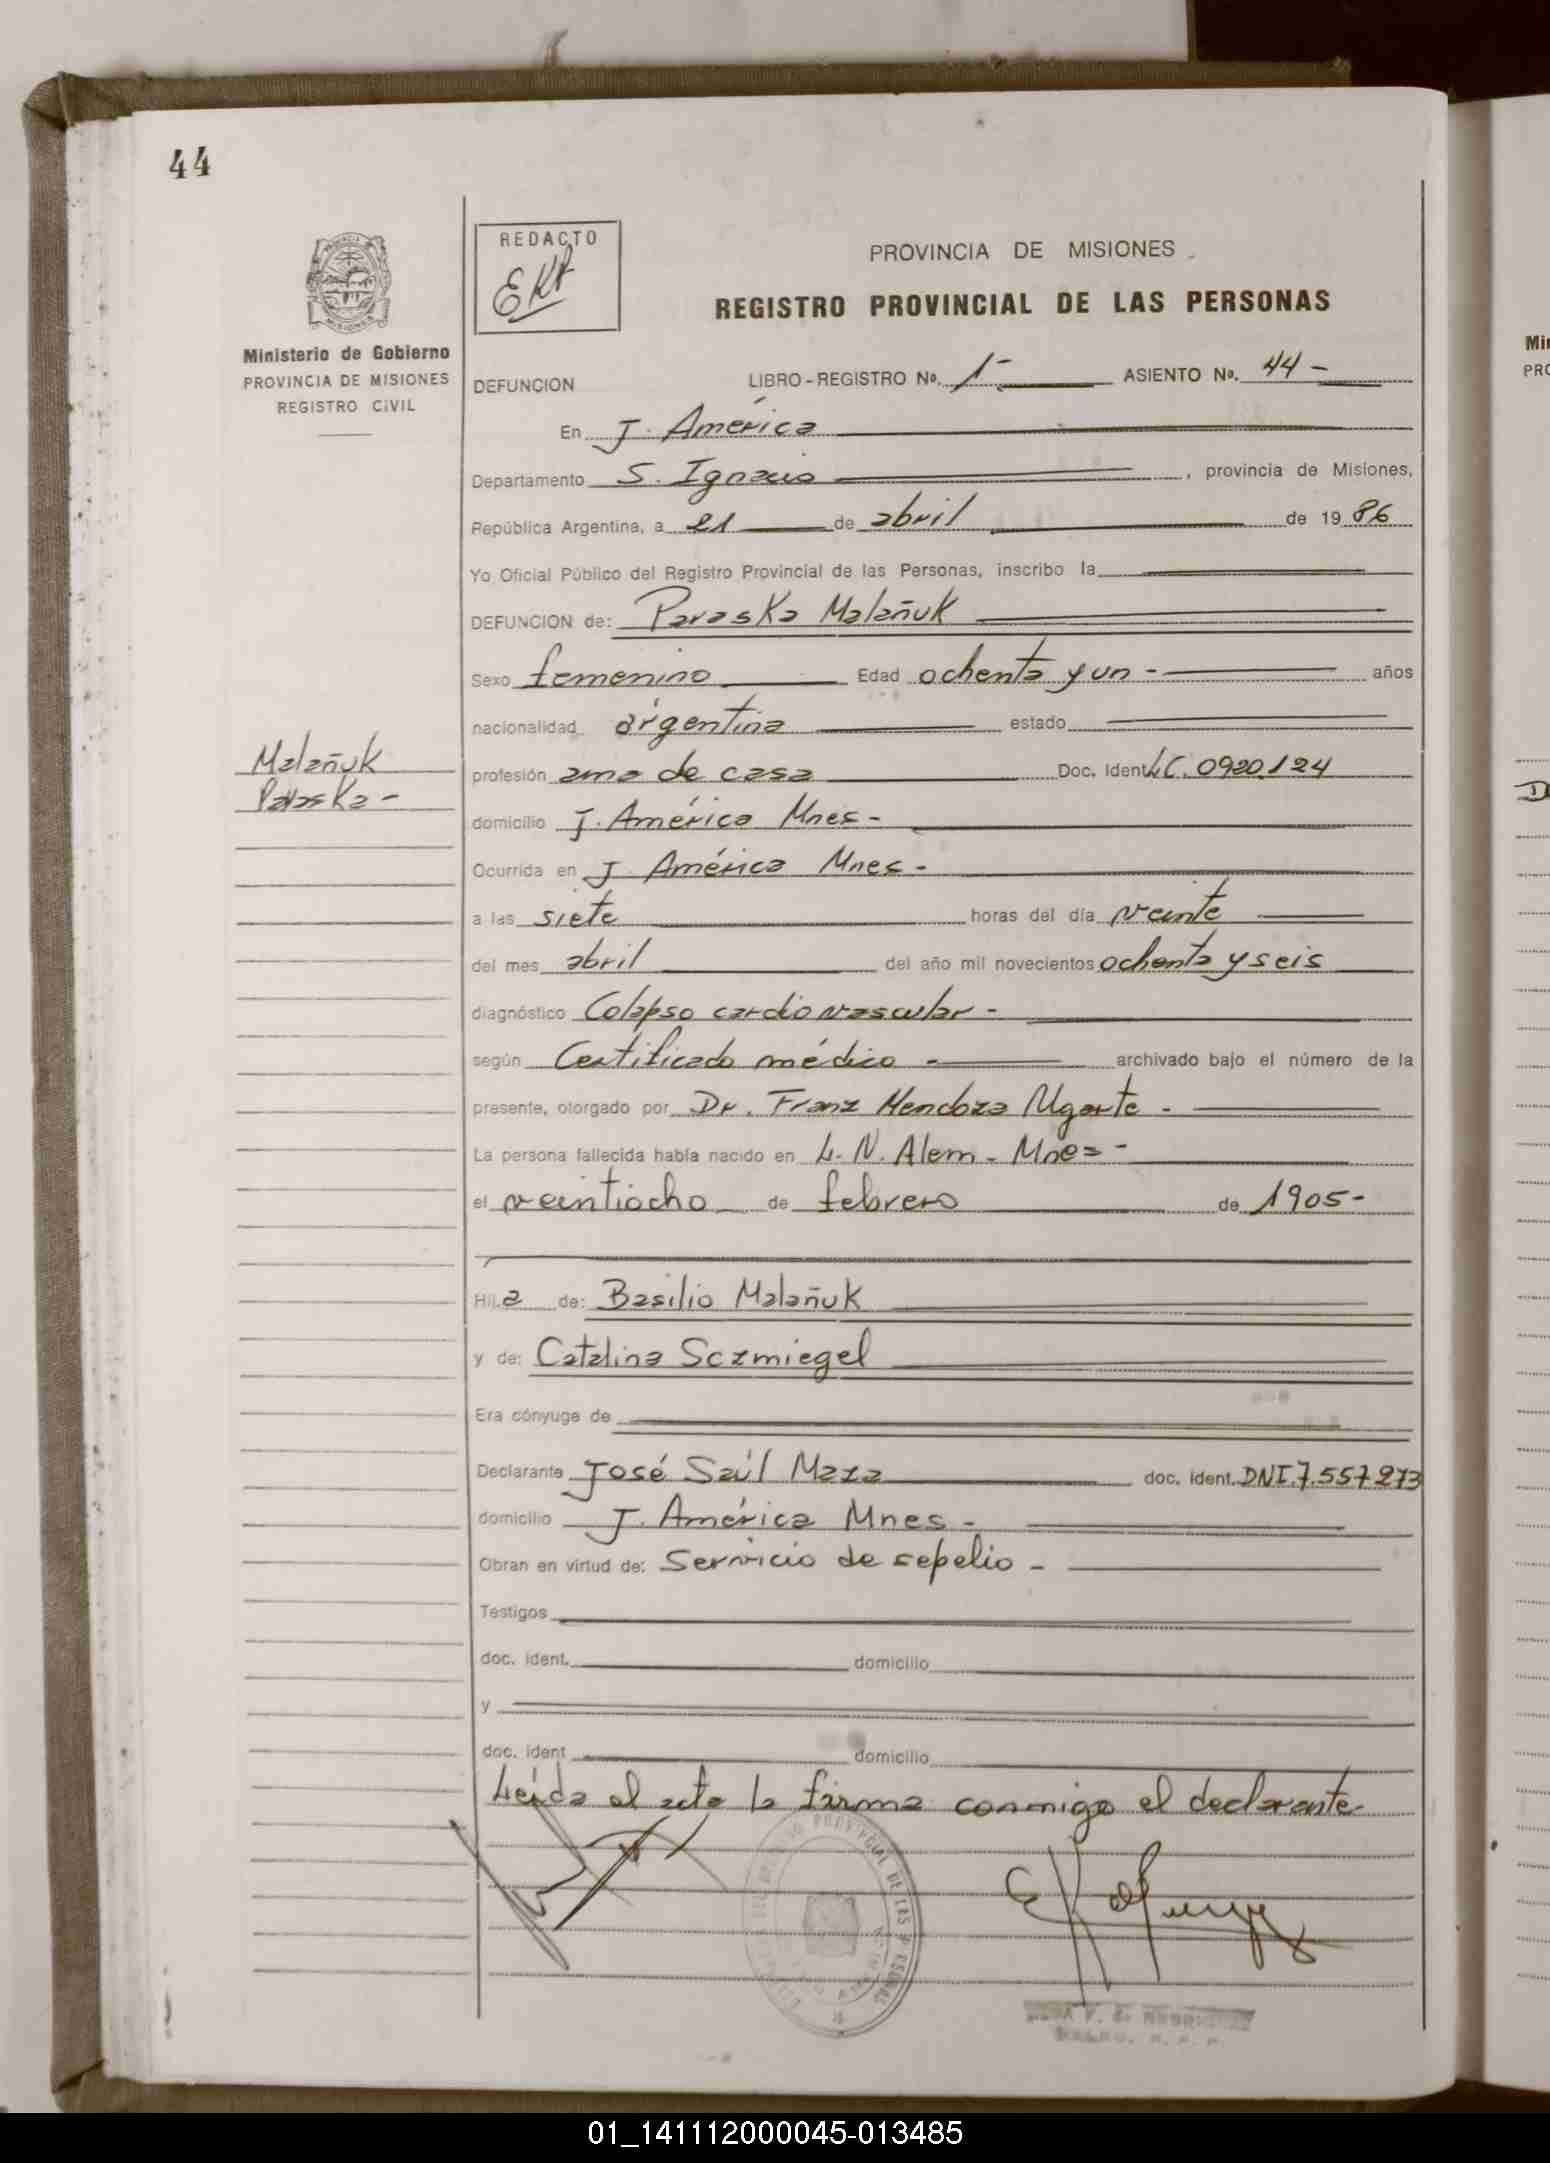 44
REDACTO
EKR
PROVINCIA DE MISIONES
REGISTRO PROVINCIAL DE LAS PERSONAS
Ministerio de Gobierno
PROVINCIA DE MISIONES
REGISTRO CIVIL
DEFUNCION LIBRO-REGISTRO No. 1- ASIENTO No. 44-
En J. América
Departamento S. Ignacio, provincia de Misiones,
República Argentina, a 21 de abril de 1986
Yo Oficial Público del Registro Provincial de las Personas, inscribo la
DEFUNCION de: Paraska Malañuk
Sexo femenino Edad ochenta y un - años
nacionalidad argentina estado
Malañuk
Paraska -
profesión ama de casa Doc. Ident L.C. 0920.124
domicilio J. América Mnes -
Ocurrida en J. América Mnes -
a las siete horas del día veinte
del mes abril del año mil novecientos ochenta y seis
diagnóstico Colapso cardiovascular -
según Certificado médico - archivado bajo el número de la
presente, otorgado por Dr. Franz Mendoza Ugarte -
La persona fallecida había nacido en L. N. Alem - Mnes -
el veintiocho de febrero de 1905-
Hij a de: Basilio Malañuk
y de: Catalina Sczmiegel
Era cónyuge de
Declarante José Saúl Maza doc. ident. DNI.7.557.273
domicilio J. América Mnes -
Obran en virtud de: Servicio de sepelio -
Testigos
doc. ident. domicilio
y
doc. ident domicilio
Leída el acta la firma conmigo el declarante
01_141112000045-013485